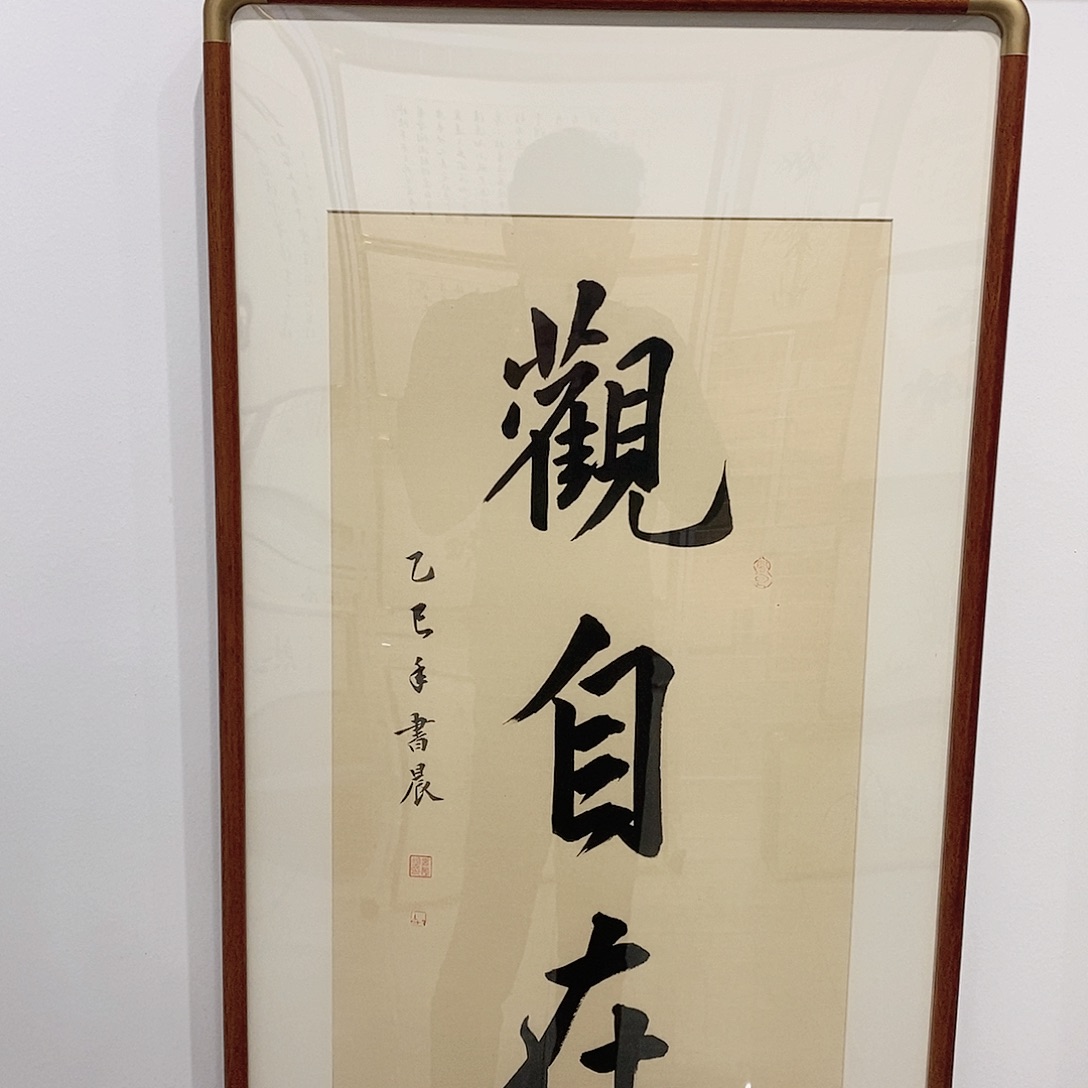 觀自在
乙巳年書晨